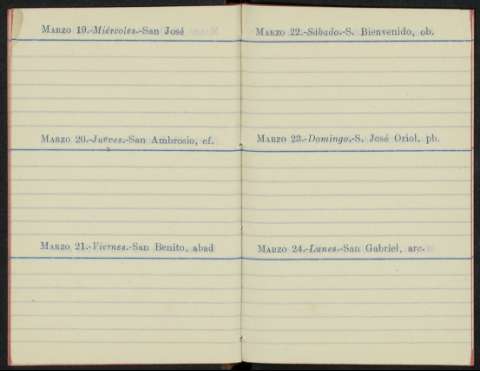 Marzo 19.-Miércoles.-San José
Marzo 20.-Jueves.-San Ambrosio, cf.
Marzo 21.-Viernes.-San Benito, abad
Marzo 22.-Sábado.-S. Bienvenido, ob.
Marzo 23.-Domingo.-S. José Oriol, pb.
Marzo 24.-Lunes.-San Gabriel, arc.